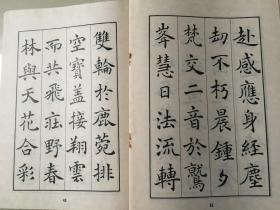 赴感應身經塵
刧不朽晨鍾夕
梵交二音於鷲
峯慧日法流轉
雙輪於鹿菀排
空寶蓋接翔雲
而共飛莊野春
林與天花合彩